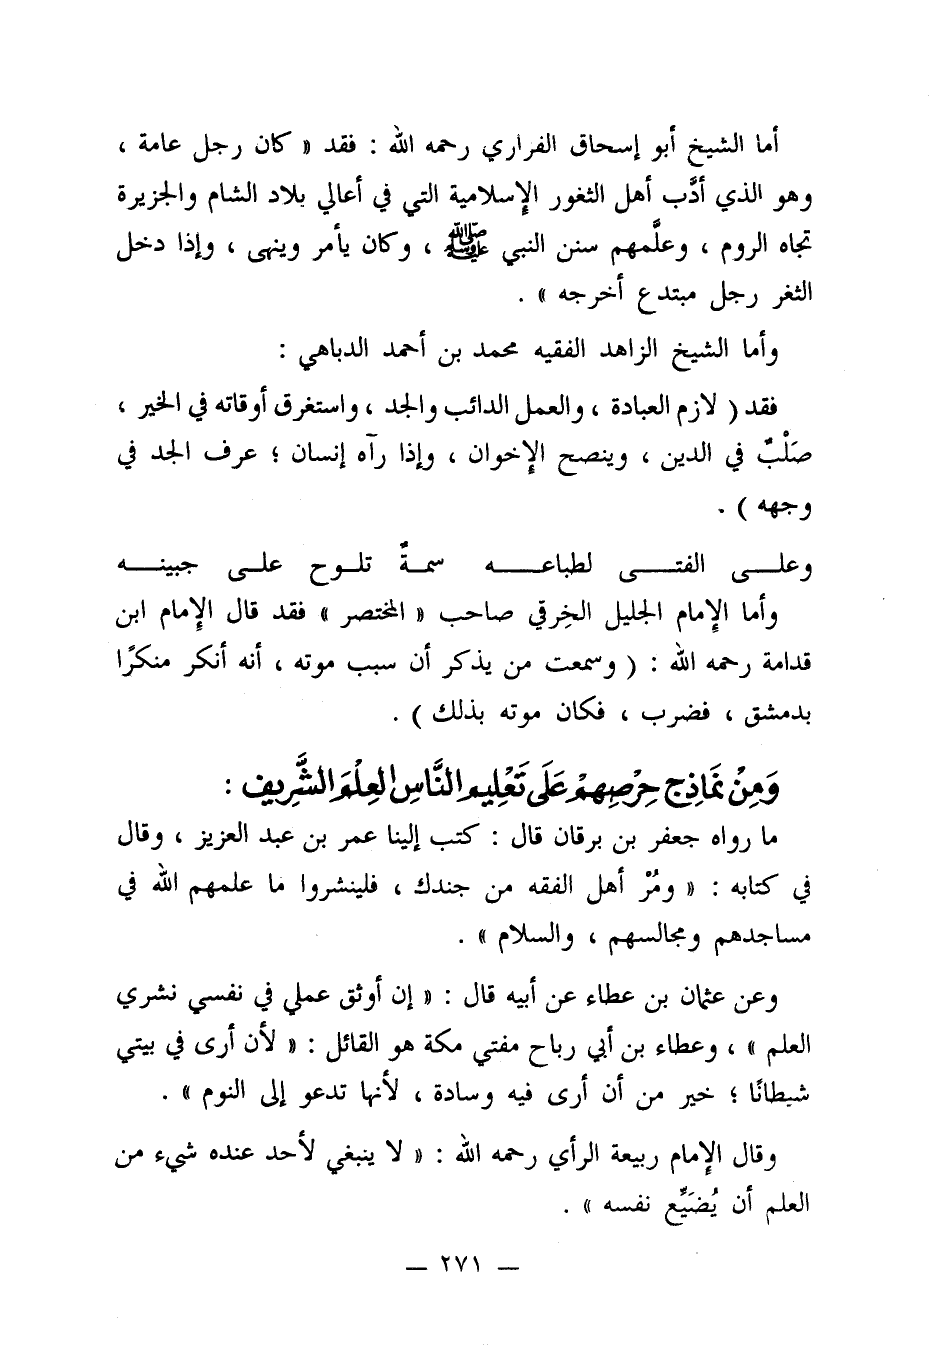 أما الشيخ أبو إسحاق الفراري رحمه الله : فقد « كان رجل عامة ،
وهو الذي أدَّب أهل الثغور الإسلامية التي في أعالي بلاد الشام والجزيرة
تجاه الروم ، وعلَّمهم سنن النبي ﷺ ، وكان يأمر وينهى ، وإذا دخل
الثغر رجل مبتدع أخرجه » .
وأما الشيخ الزاهد الفقيه محمد بن أحمد الدباهي :
فقد ( لازم العبادة ، والعمل الدائب والجد ، واستغرق أوقاته في الخير ،
صَلْبٌ في الدين ، وينصح الإخوان ، وإذا رآه إنسان ؛ عرف الجد في
وجهه ) .
وعلــى الفتــى لطباعــه سمةٌ تلـوح علـى جبينـه
وأما الإمام الجليل الخِرقي صاحب « المختصر » فقد قال الإمام ابن
قدامة رحمه الله : ( وسمعت من يذكر أن سبب موته ، أنه أنكر منكرًا
بدمشق ، فضرب ، فكان موته بذلك ) .
وَمِنْ نَمَاذِج حِرْصِهِمْ عَلَى تَعْلِيمِ النَّاسِ العِلْمَ الشَّرِيف :
ما رواه جعفر بن برقان قال : كتب إلينا عمر بن عبد العزيز ، وقال
في كتابه : « ومُرْ أهل الفقه من جندك ، فلينشروا ما علمهم الله في
مساجدهم ومجالسهم ، والسلام » .
وعن عثمان بن عطاء عن أبيه قال : « إن أوثق عملي في نفسي نشري
العلم » ، وعطاء بن أبي رباح مفتي مكة هو القائل : « لأن أرى في بيتي
شيطانًا ؛ خير من أن أرى فيه وسادة ، لأنها تدعو إلى النوم » .
وقال الإمام ربيعة الرأي رحمه الله : « لا ينبغي لأحد عنده شيء من
العلم أن يُضَيِّع نفسه » .
— ٢٧١ —